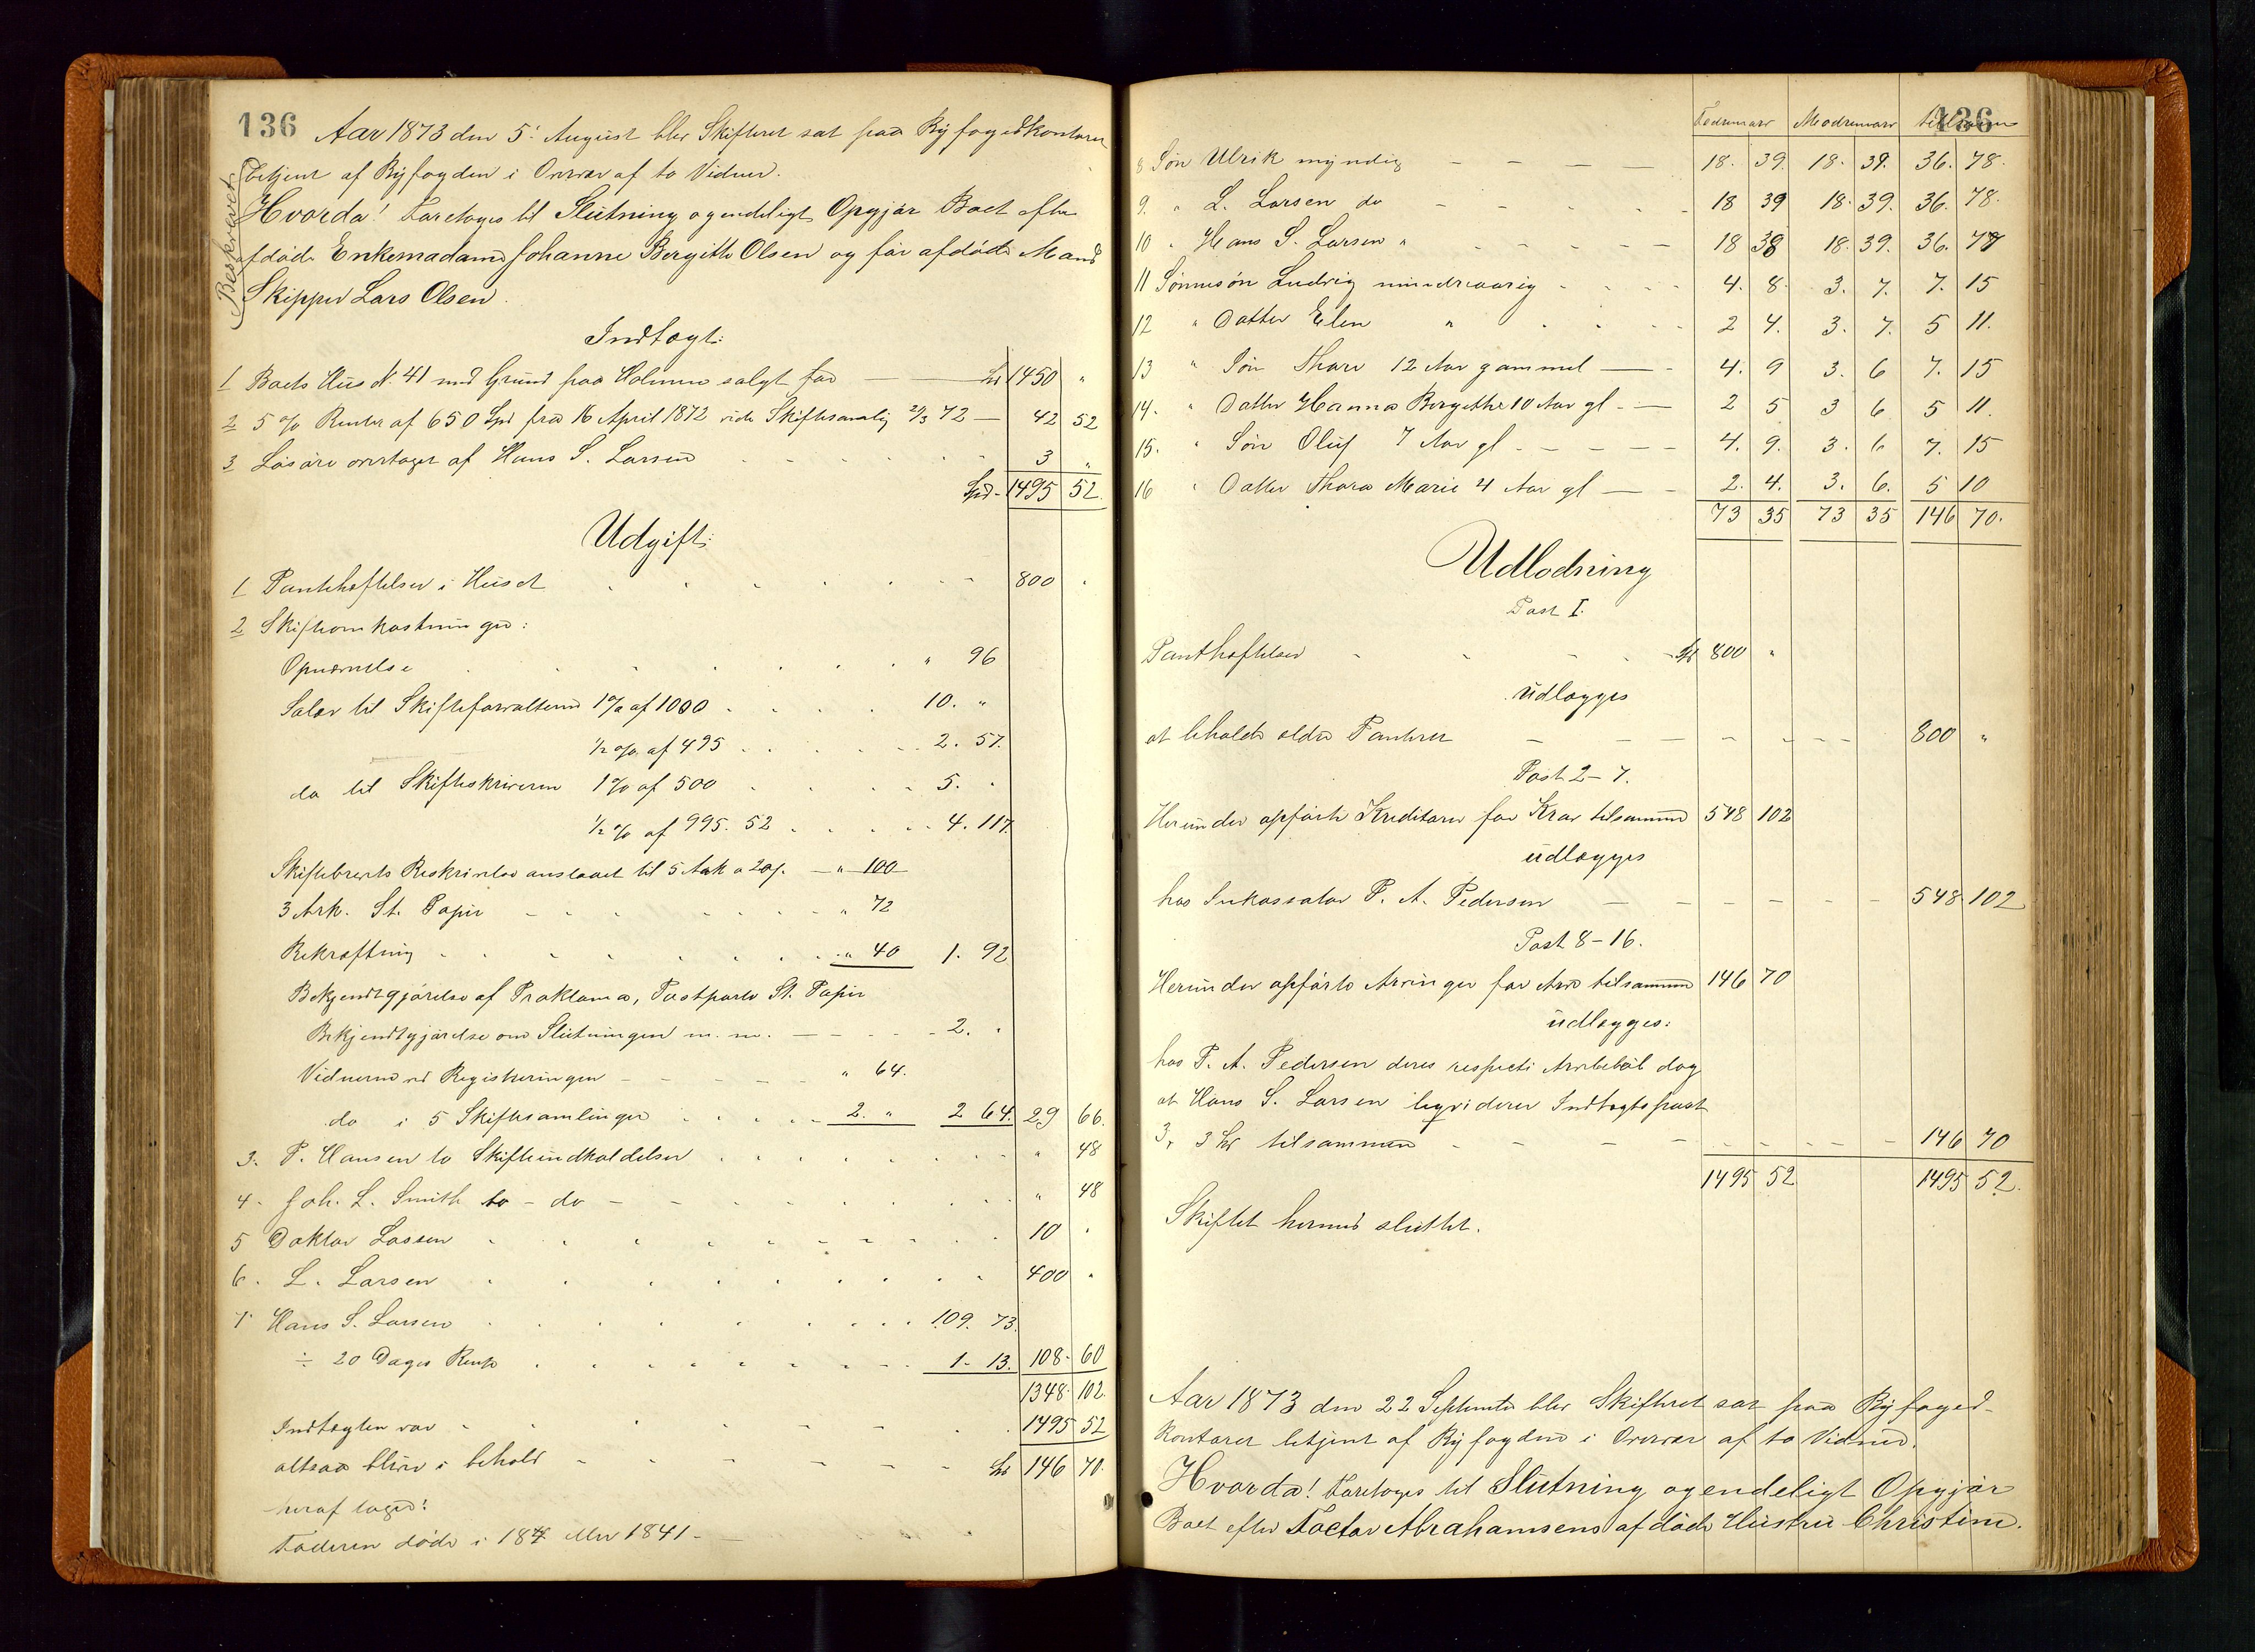 136
Aar 1873 den 5' August blev Skifteret sat paa Byfogedkontoret
betjent af Byfogden i Overvær af to Vidner.
Beskrevet
Hvorda! Foretoges til Slutning og endeligt Opgjør Boet efter
afdøde Enkemadame Johanne Bergitte Olsen og før afdøde Mand
Skipper Lars Olsen.
Indtægt:
1 Boets Hus N. 41 med Grund paa Holmen solgt for — Spd 1450 "
2 5 % Renter af 650 Spd fra 16 April 1872 vide Skiftesamling 21/3 72 — 42 52
3 Løsøre overtaget af Hans S. Larsen 3 "
Spd. 1495 52.
Udgift:
1 Pantheftelser i Huset 800 "
2 Skifteomkostninger:
Opnævnelse " 96
Salær til Skifteforvalteren 1 % af 1000 10. "
1/2 % af 495 2. 57.
do til Skifteskriveren 1 % af 500 5. "
1/2 % af 995. 52 4. 117.
Skiftebrevets Beskrivelse anslaaet til 5 Ark a 20 s. — " 100
3 Ark. St. Papir " 72
Bekræftning " 40 1. 92
Bekjendtgjørelse af Proklama, Postporto St. Papir
Bekjendtgjørelse om Slutningen m. m. 2. "
Vidnerne ved Registreringen " 64.
do i 5 Skiftesamlinger 2. " 2 64. 29 66.
3. P. Hansen to Skifteindkaldelser " 48
4. Joh. L. Smith to - do - " 48
5 Doktor Lassen 10 "
6. L. Larsen 400 "
7 Hans S. Larsen 109. 73.
÷ 20 Dages Rente 1. 13. 108. 60
1348. 102.
Indtægten var 1495 52
altsaa bliver i behold Spd 146 70.
heraf tager:
Faderen døde i 184 eller 1841 -
136
Fædrenearv Mødrenearv tilsammen
8 Søn Ulrik myndig 18. 39. 18. 39. 36. 78.
9. " L. Larsen do 18 39 18. 39. 36. 78.
10 " Hans S. Larsen " 18 38 18. 39. 36. 77
11 Sønnesøn Ludvig mindreaarig 4. 8. 3. 7. 7. 15
12 " Datter Elen " 2 4. 3. 7. 5 11.
13 " Søn Thore 12 Aar gammel 4. 9 3. 6 7. 15
14. " Datter Hanna Bergethe 10 Aar gl. 2 5 3 6 5 11.
15. " Søn Oluf 7 Aar gl 4. 9. 3. 6 7. 15
16 " Datter Thora Marie 4 Aar gl 2. 4. 3. 6. 5 10
73 35 73 35 146 70.
Udlodning
Post I.
Pantheftelser Spd 800 "
udlægges
at beholde ældre Panteret 800 "
Post 2-7.
Herunder opførte Kreditorer for Krav tilsammen 548 102
udlægges
hos Inkassator P. A. Pedersen 548 102
Post 8-16.
Herunder opførte Arvinger for Arv tilsammen 146 70
udlægges:
hos P. A. Pedersen deres respecti Arvebeløb dog
at Hans S. Larsen liqviderer Indtægtspost
3, 3 Spd tilsammen 146 70
1495 52 1495 52.
Skiftet hermed sluttet.
Aar 1873 den 22 September blev Skifteret sat paa Byfoged-
kontoret betjent af Byfogden i Overvær af to Vidner.
Hvorda! Foretoges til Slutning og endeligt Opgjør
Boet efter Toctor Abrahamsens afdøde Hustru Christine.